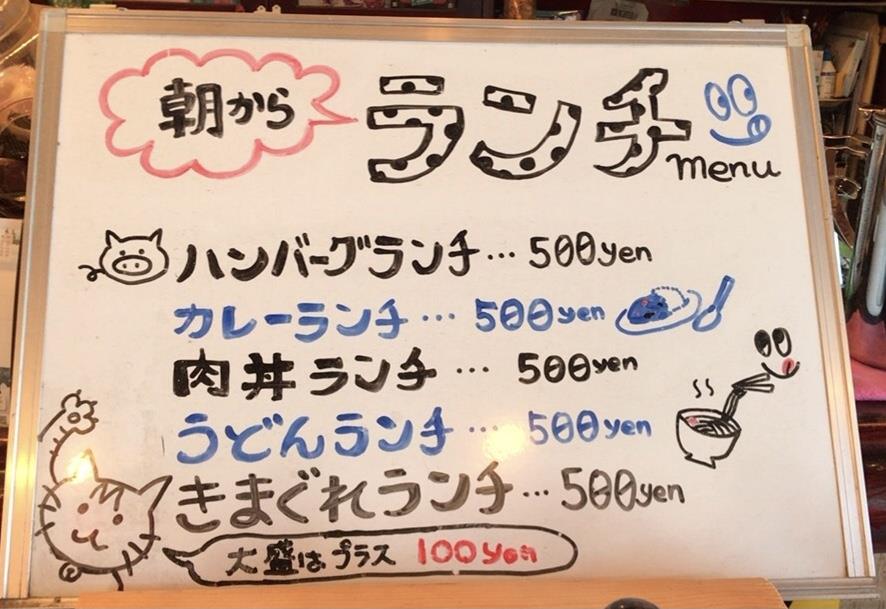 朝から
ランチ
menu
ハンバーグランチ…500yen
カレーランチ…500yen
肉丼ランチ…500yen
うどんランチ…500yen
きまぐれランチ…500yen
大盛はプラス 100yen